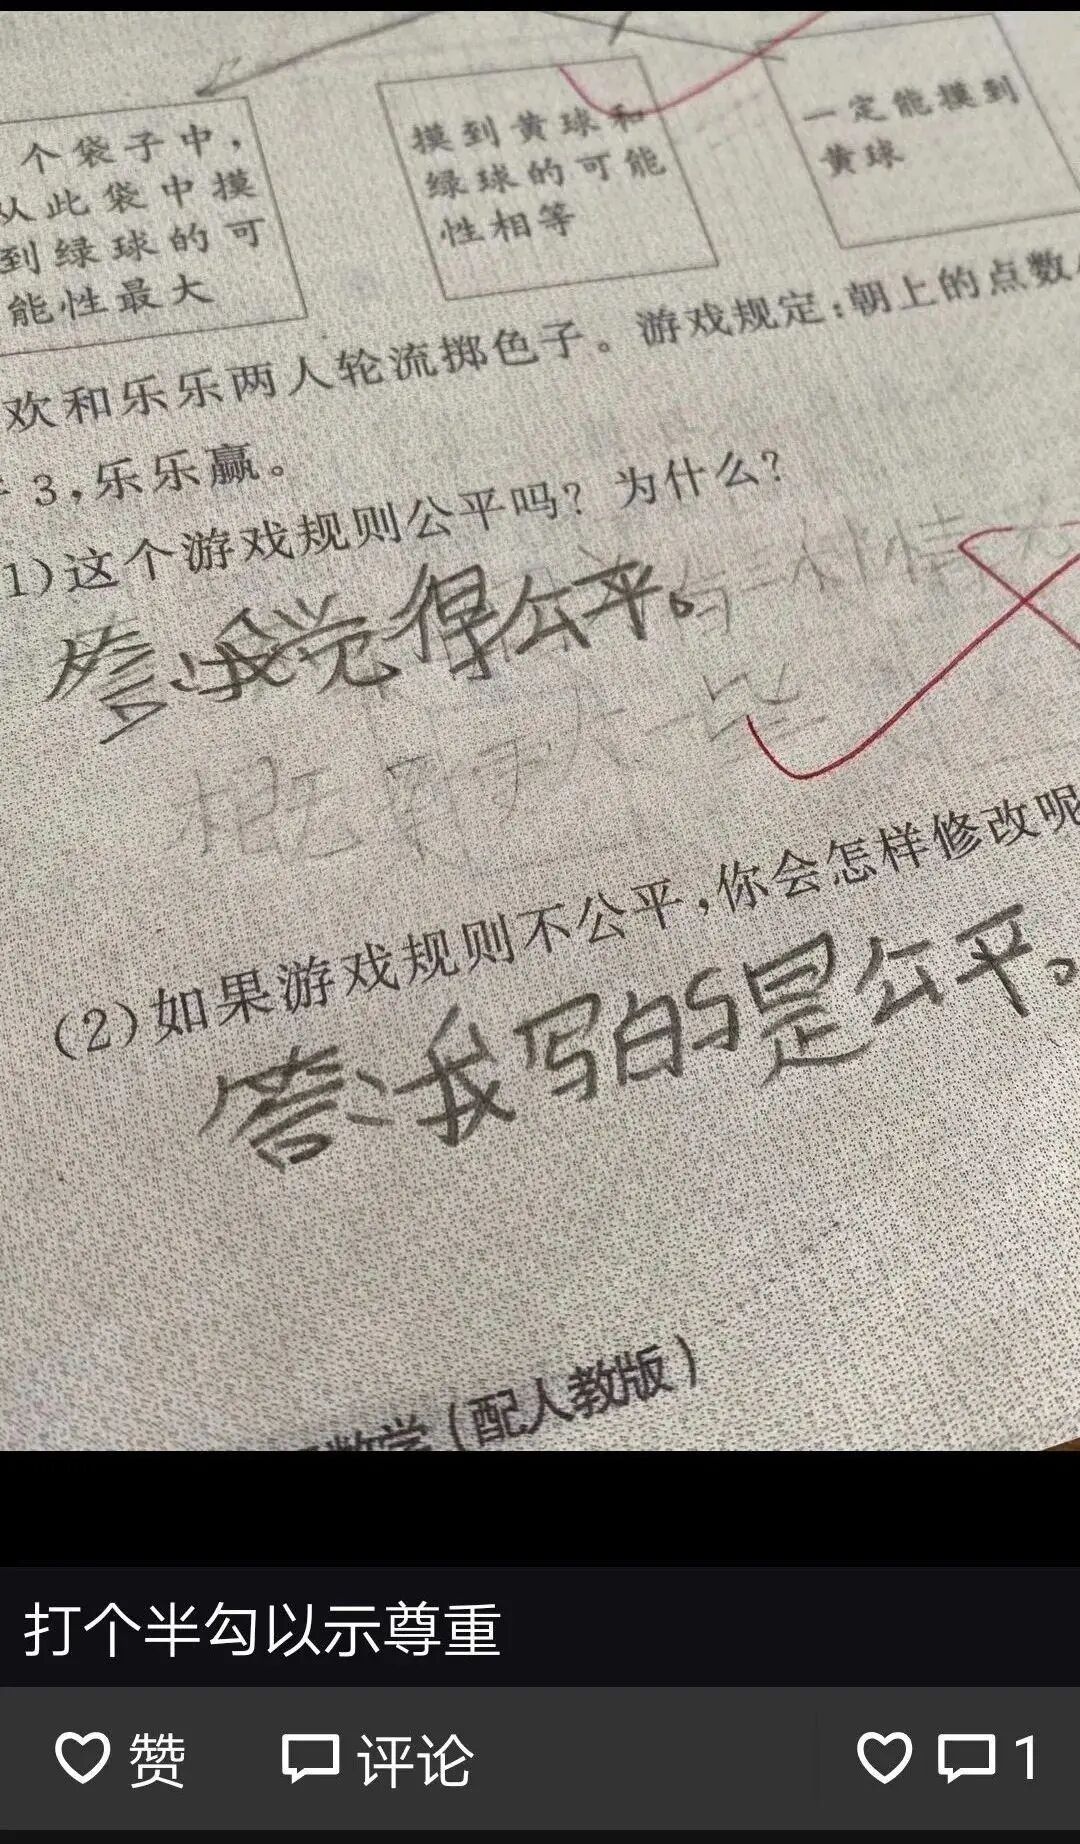 个袋子中，
从此袋中摸
到绿球的可
能性最大
摸到黄球和
绿球的可能
性相等
一定能摸到
黄球
欢和乐乐两人轮流掷色子。游戏规定：朝上的点数
3，乐乐赢。
1）这个游戏规则公平吗？为什么？
答：我觉得公平。
（2）如果游戏规则不公平，你会怎样修改呢
答：我写的是公平。
数学（配人教版）
打个半勾以示尊重
赞 评论 1